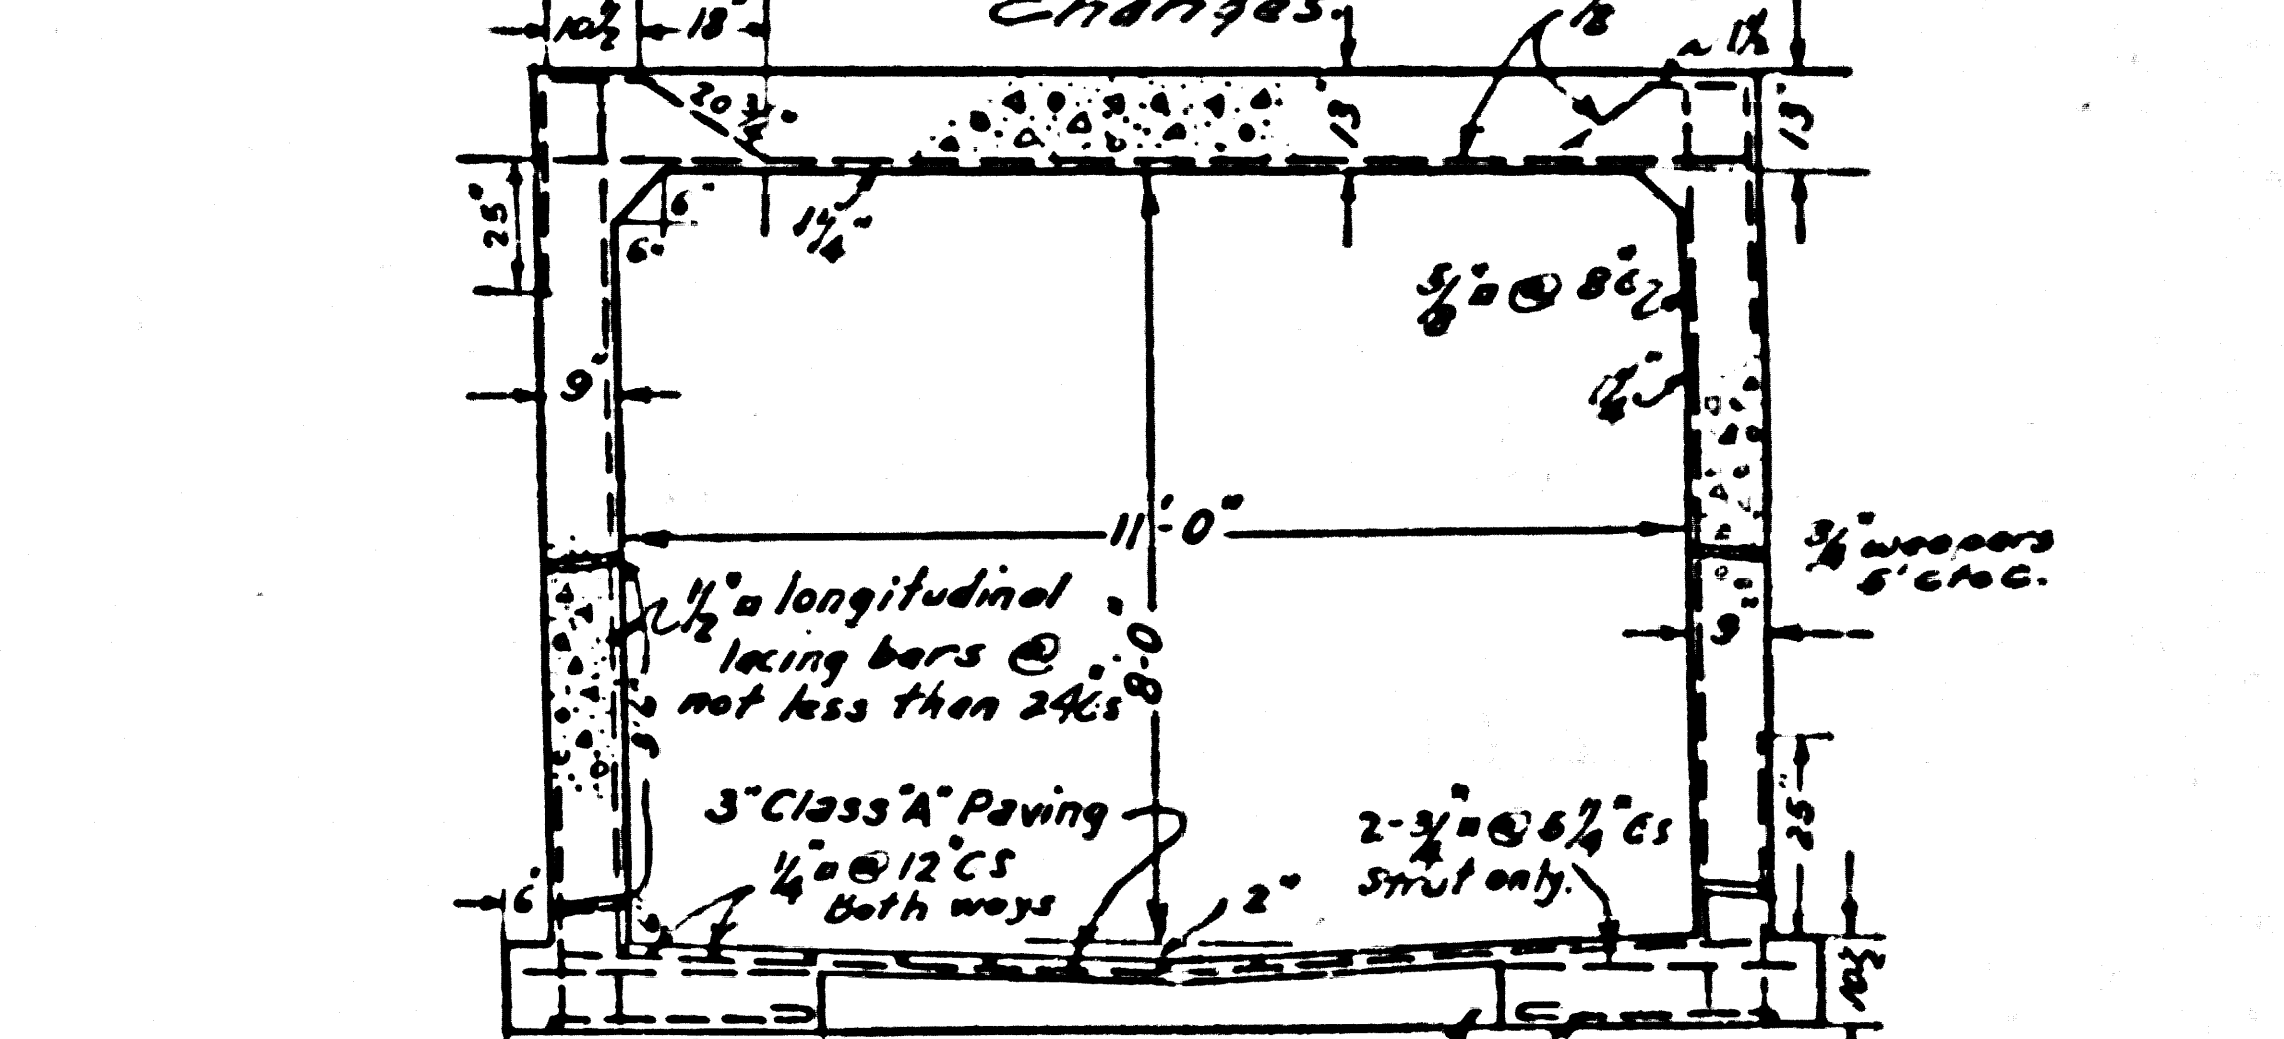 changes.
10½
18"
1½
20¾"
13"
13"
25"
6"
6"
1¼"
⅝"□ @ 8"c
1¼"
9"
11'-0"
¾" weepers
6' c to c.
½"□ longitudinal
lacing bars @
not less than 24"c's
8'-0"
9"
3" Class "A" Paving
¼"□ @ 12" cs
Both ways
2"
2-¾"□ @ 6¼" cs
strut only.
25"
6"
10½"